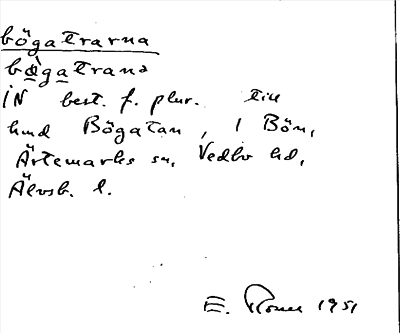 bögatrarna
bø̀gatrana
IN best. f. plur. till
hmd Bögatan, i Bön,
Ärtemarks sn, Vedbo hd,
Älvsb. l.
E. 1951